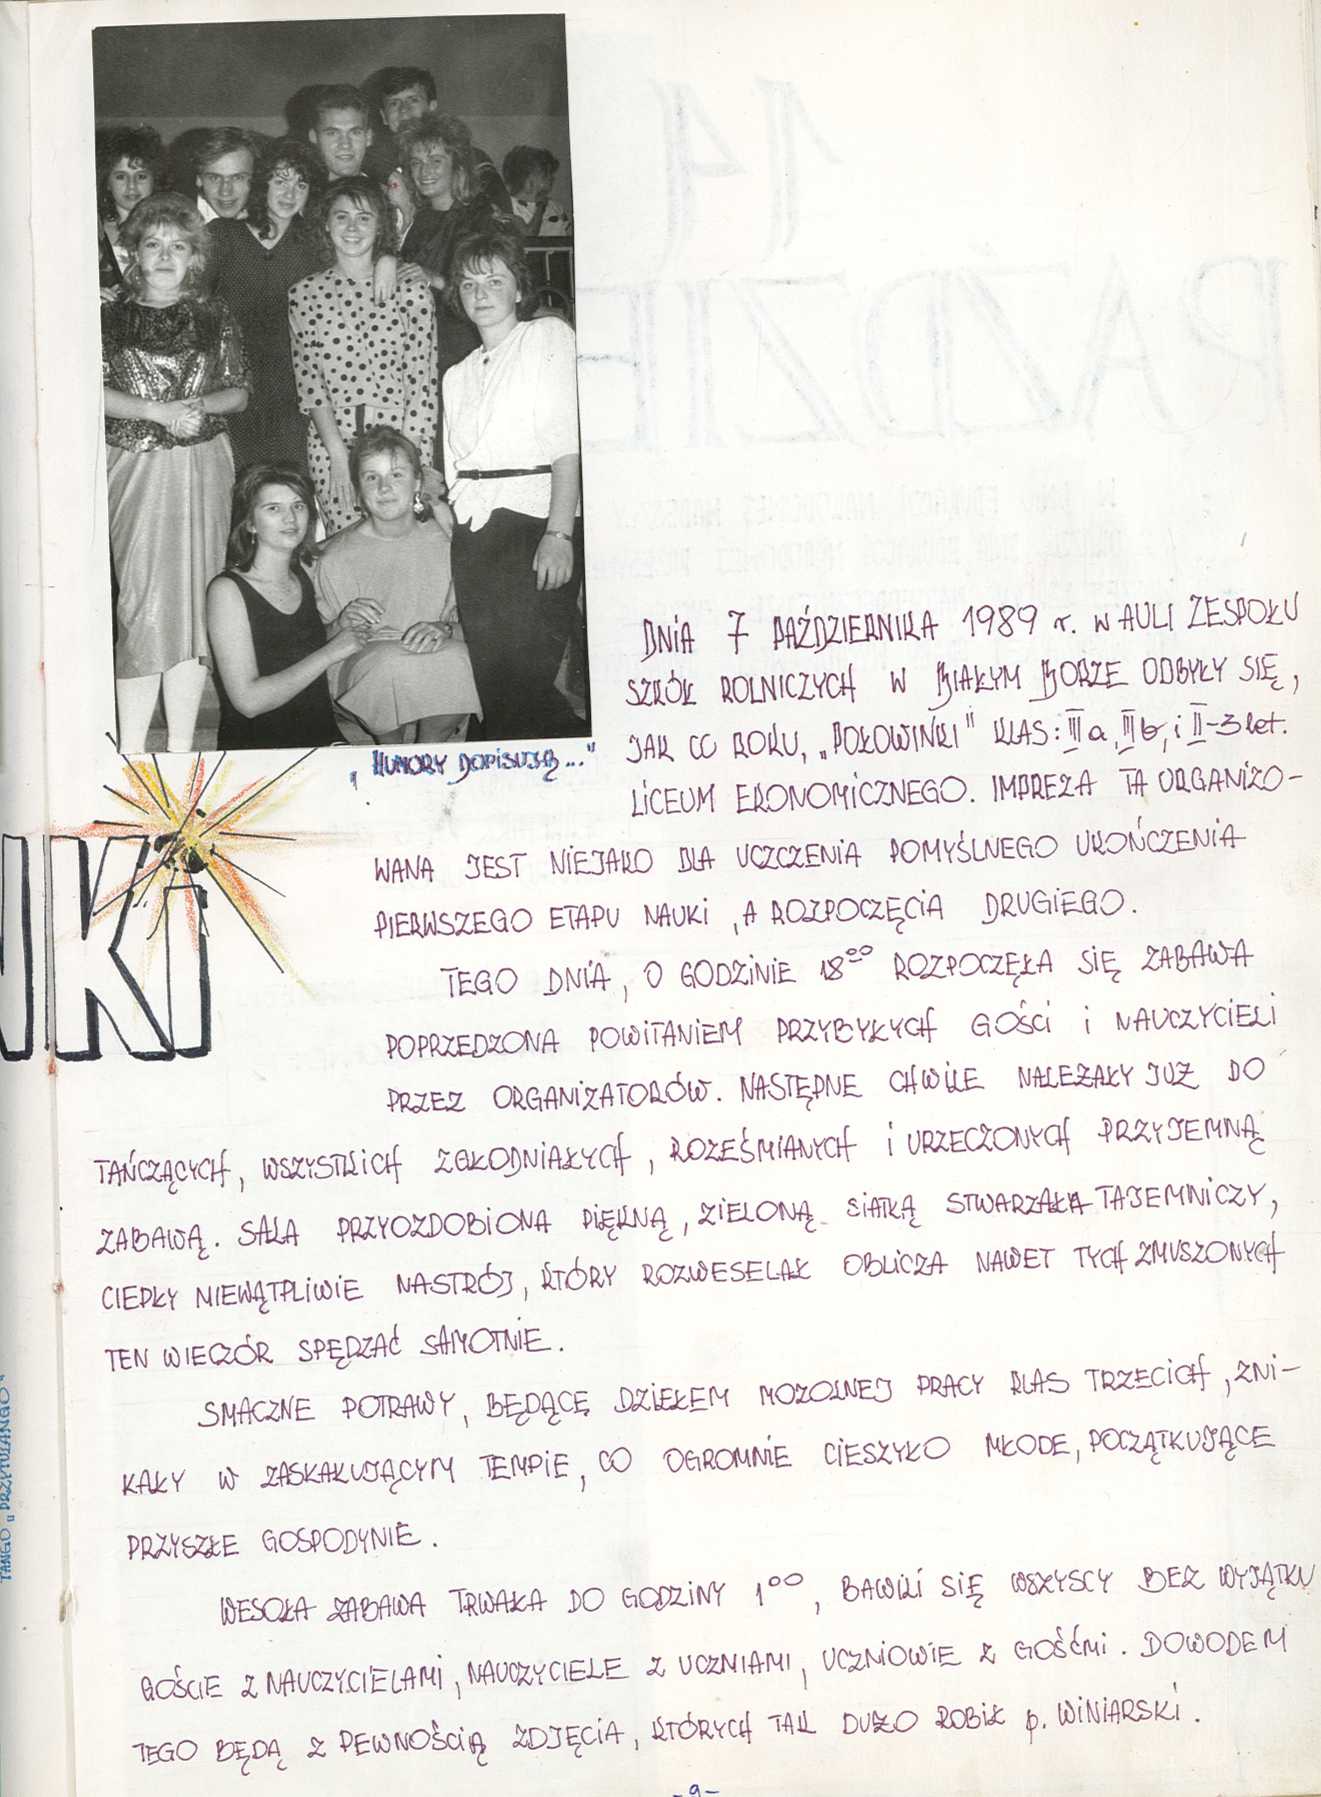 „HUMORY DOPISUJĄ..."
DNIA 7 PAŹDZIERNIKA 1989 r. W AULI ZESPOŁU
SZKÓŁ ROLNICZYCH W BIAŁYM BORZE ODBYŁY SIĘ,
JAK CO ROKU, „POŁOWINKI" KLAS: III a, III b, i II-3 let.
LICEUM EKONOMICZNEGO. IMPREZA TA ORGANIZO-
WANA JEST NIEJAKO DLA UCZCZENIA POMYŚLNEGO UKOŃCZENIA
PIERWSZEGO ETAPU NAUKI, A ROZPOCZĘCIA DRUGIEGO.
NKI
TEGO DNIA, O GODZINIE 18⁰⁰ ROZPOCZĘŁA SIĘ ZABAWA
POPRZEDZONA POWITANIEM PRZYBYŁYCH GOŚCI i NAUCZYCIELI
PRZEZ ORGANIZATORÓW. NASTĘPNE CHWILE NALEŻAŁY JUŻ DO
TAŃCZĄCYCH, WSZYSTKICH ZGŁODNIAŁYCH, ROZEŚMIANYCH i URZECZONYCH PRZYJEMNĄ
ZABAWĄ. SALA PRZYOZDOBIONA PIĘKNĄ, ZIELONĄ SIATKĄ STWARZAŁA TAJEMNICZY,
CIEPŁY NIEWĄTPLIWIE NASTRÓJ, KTÓRY ROZWESELAŁ OBLICZA NAWET TYCH ZMUSZONYCH
TEN WIECZÓR SPĘDZAĆ SAMOTNIE.
SMACZNE POTRAWY, BĘDĄCE DZIEŁEM MOZOLNEJ PRACY KLAS TRZECICH, ZNI-
KAŁY W ZASKAKUJĄCYM TEMPIE, CO OGROMNIE CIESZYŁO MŁODE, POCZĄTKUJĄCE
PRZYSZŁE GOSPODYNIE.
WESOŁA ZABAWA TRWAŁA DO GODZINY 1⁰⁰, BAWILI SIĘ WSZYSCY BEZ WYJĄTKU
GOŚCIE Z NAUCZYCIELAMI, NAUCZYCIELE Z UCZNIAMI, UCZNIOWIE Z GOŚĆMI. DOWODEM
TEGO BĘDĄ Z PEWNOŚCIĄ ZDJĘCIA, KTÓRYCH TAK DUŻO ROBIŁ p. WINIARSKI.
TANGO „PRZYTULANGO"
-9-